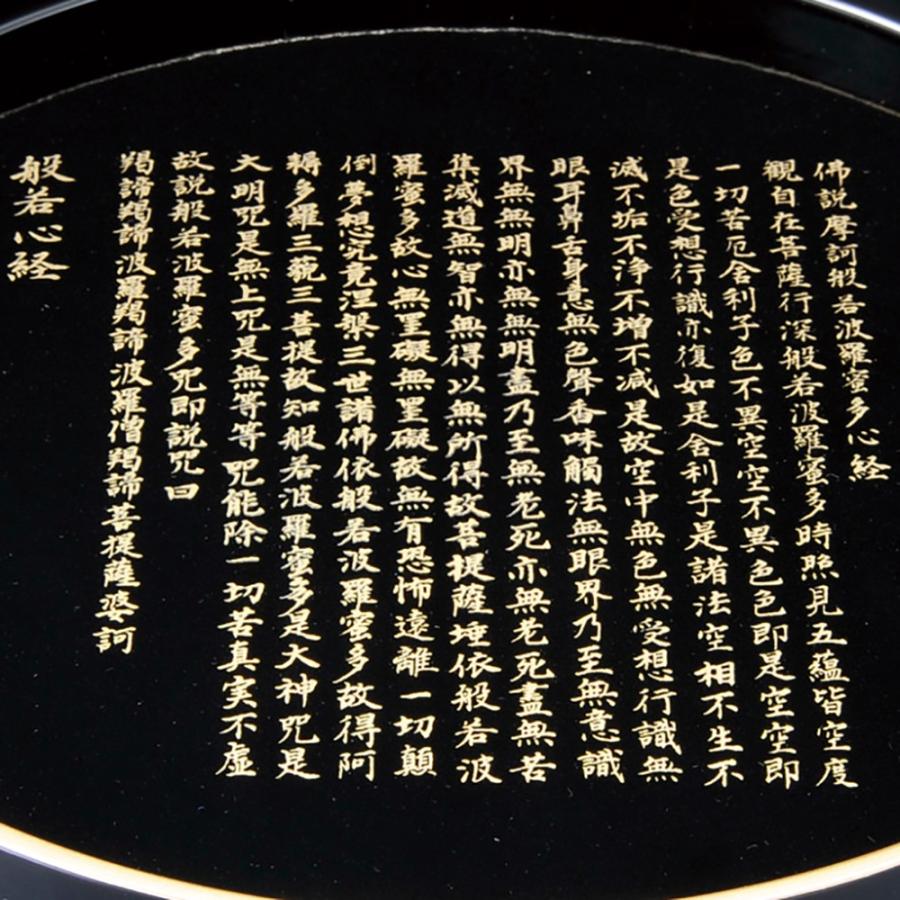 佛説摩訶般若波羅蜜多心経
観自在菩薩行深般若波羅蜜多時照見五蘊皆空度
一切苦厄舎利子色不異空空不異色色即是空空即
是色受想行識亦復如是舎利子是諸法空相不生不
滅不垢不浄不増不減是故空中無色無受想行識無
眼耳鼻舌身意無色聲香味觸法無眼界乃至無意識
界無無明亦無無明盡乃至無老死亦無老死盡無苦
集滅道無智亦無得以無所得故菩提薩埵依般若波
羅蜜多故心無罣礙無罣礙故無有恐怖遠離一切顛
倒夢想究竟涅槃三世諸佛依般若波羅蜜多故得阿
耨多羅三藐三菩提故知般若波羅蜜多是大神咒是
大明咒是無上咒是無等等咒能除一切苦真実不虚
故説般若波羅蜜多咒即説咒曰
羯諦羯諦波羅羯諦波羅僧羯諦菩提薩婆訶
般若心経